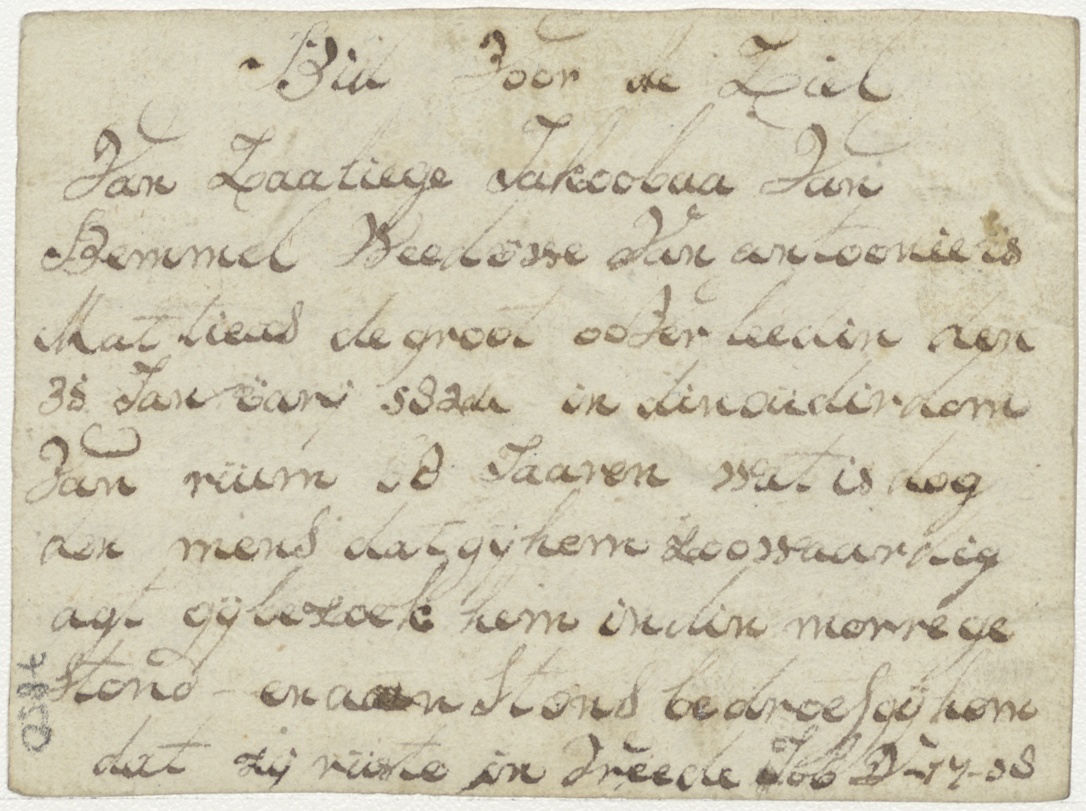 Bid Voor de Ziel
Van Zaaliege Jakoobaa Van
Bemmel Weedowe Van antoonieis
Mattieus de groot ooVerleedin den
Janüarij in dinoüdirdom
Van rüim Jaaren wat is dog
den mens dat gÿ hem zoowaardig
agt gÿ bezoek hem in din morrege
stond en aan stons bedroef gÿ hem
dat zij rüste in Vreede Job